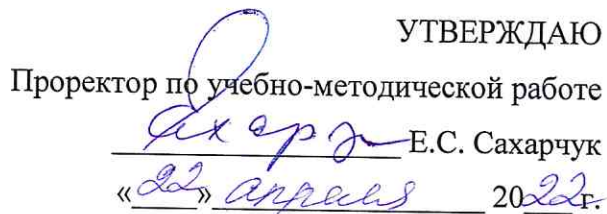 УТВЕРЖДАЮ
Проректор по учебно-методической работе
Е.С. Сахарчук
«22» апреля 2022г.